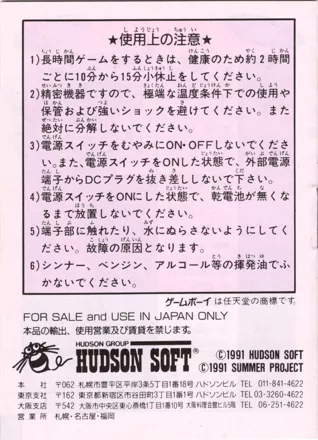 ★使用上の注意★
1)長時間ゲームをするときは、健康のため約2時間
ごとに10分から15分小休止をしてください。
2)精密機器ですので、極端な温度条件下での使用や
保管および強いショックを避けてください。また
絶対に分解しないでください。
3)電源スイッチをむやみにON・OFFしないでくださ
い。また、電源スイッチをONした状態で、外部電源
端子からDCプラグを抜き差ししないで下さい。
4)電源スイッチをONにした状態で、乾電池が無くな
るまで放置しないでください。
5)端子部に触れたり、水にぬらさないようにしてく
ださい。故障の原因となります。
6)シンナー、ベンジン、アルコール等の揮発油でふ
かないでください。
ゲームボーイは任天堂の商標です。
FOR SALE and USE IN JAPAN ONLY
本品の輸出、使用営業及び賃貸を禁じます。
HUDSON GROUP
HUDSON SOFT®
©1991 HUDSON SOFT
©1991 SUMMER PROJECT
本社 〒062 札幌市豊平区平岸3条5丁目1番18号 ハドソンビル TEL 011-841-4622
東京支社 〒162 東京都新宿区市谷田町3丁目1番1号 ハドソンビル TEL 03-3260-4622
大阪支店 〒542 大阪市中央区東心斎橋1丁目1番10号 大阪料理会館ビル5階 TEL 06-251-4622
営業所 札幌・名古屋・福岡